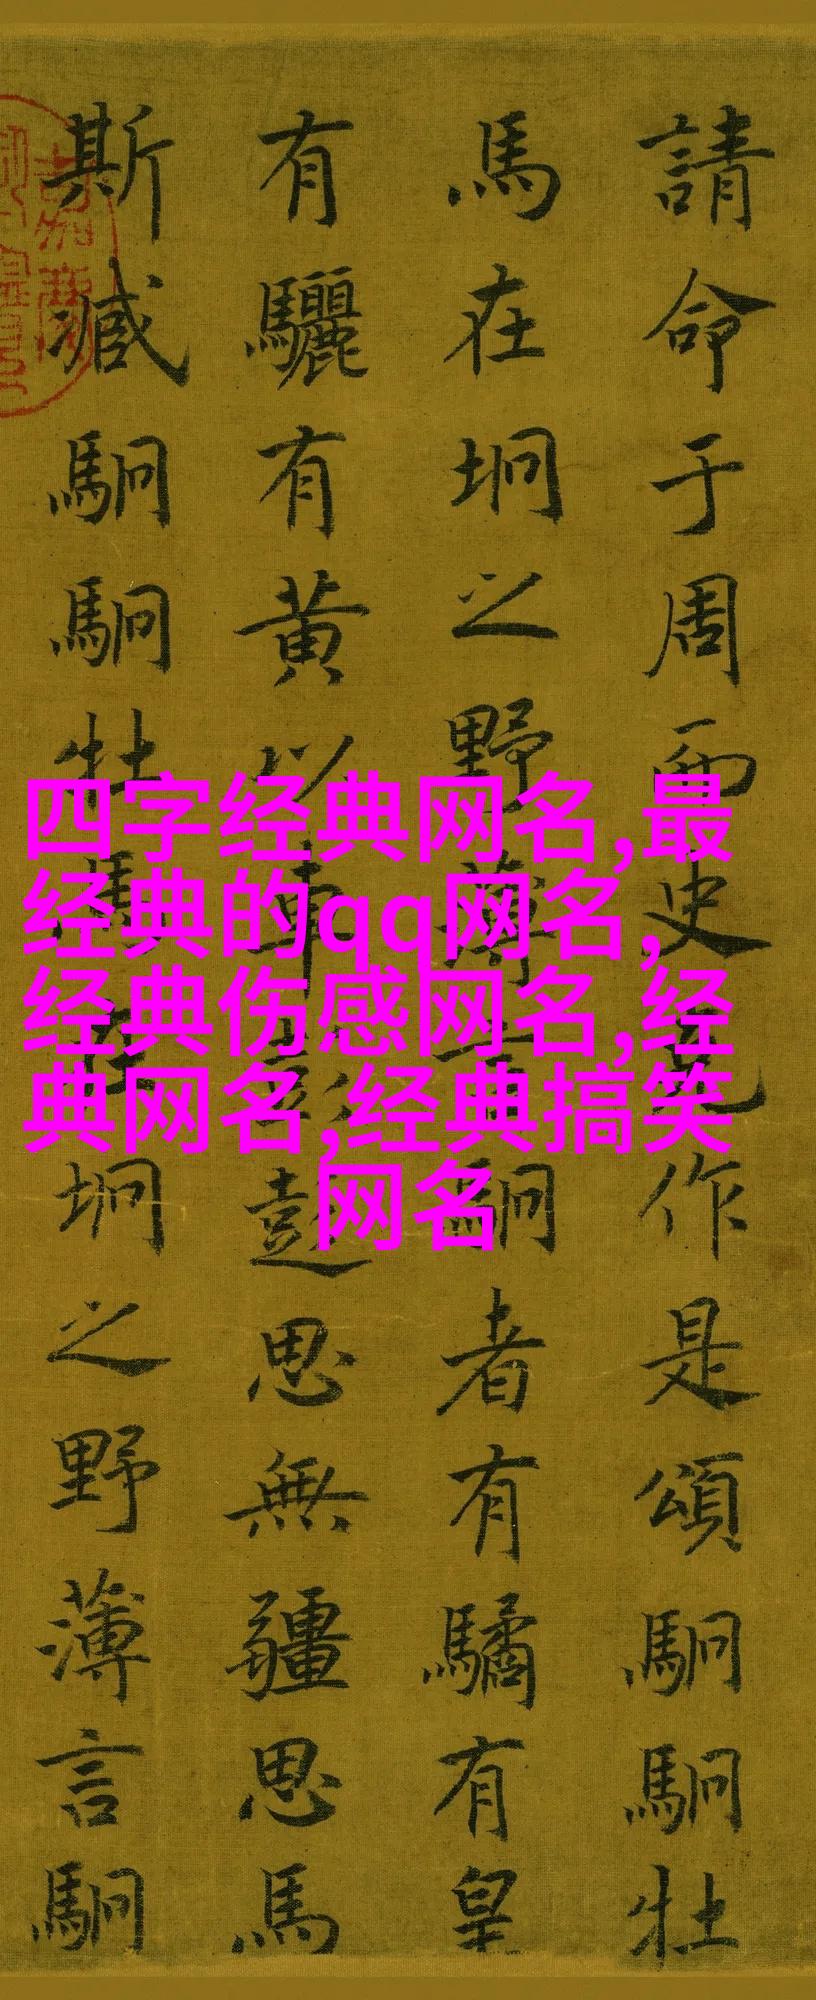 請命于周而史克作是頌駉駉牡
馬在坰之野薄言駉者有驈有皇
有驪有黄以車彭彭思無疆思馬
斯臧駉駉牡馬在坰之野薄言駉
四字经典网名,最
经典的qq网名,
经典伤感网名,经
典网名,经典搞笑
网名